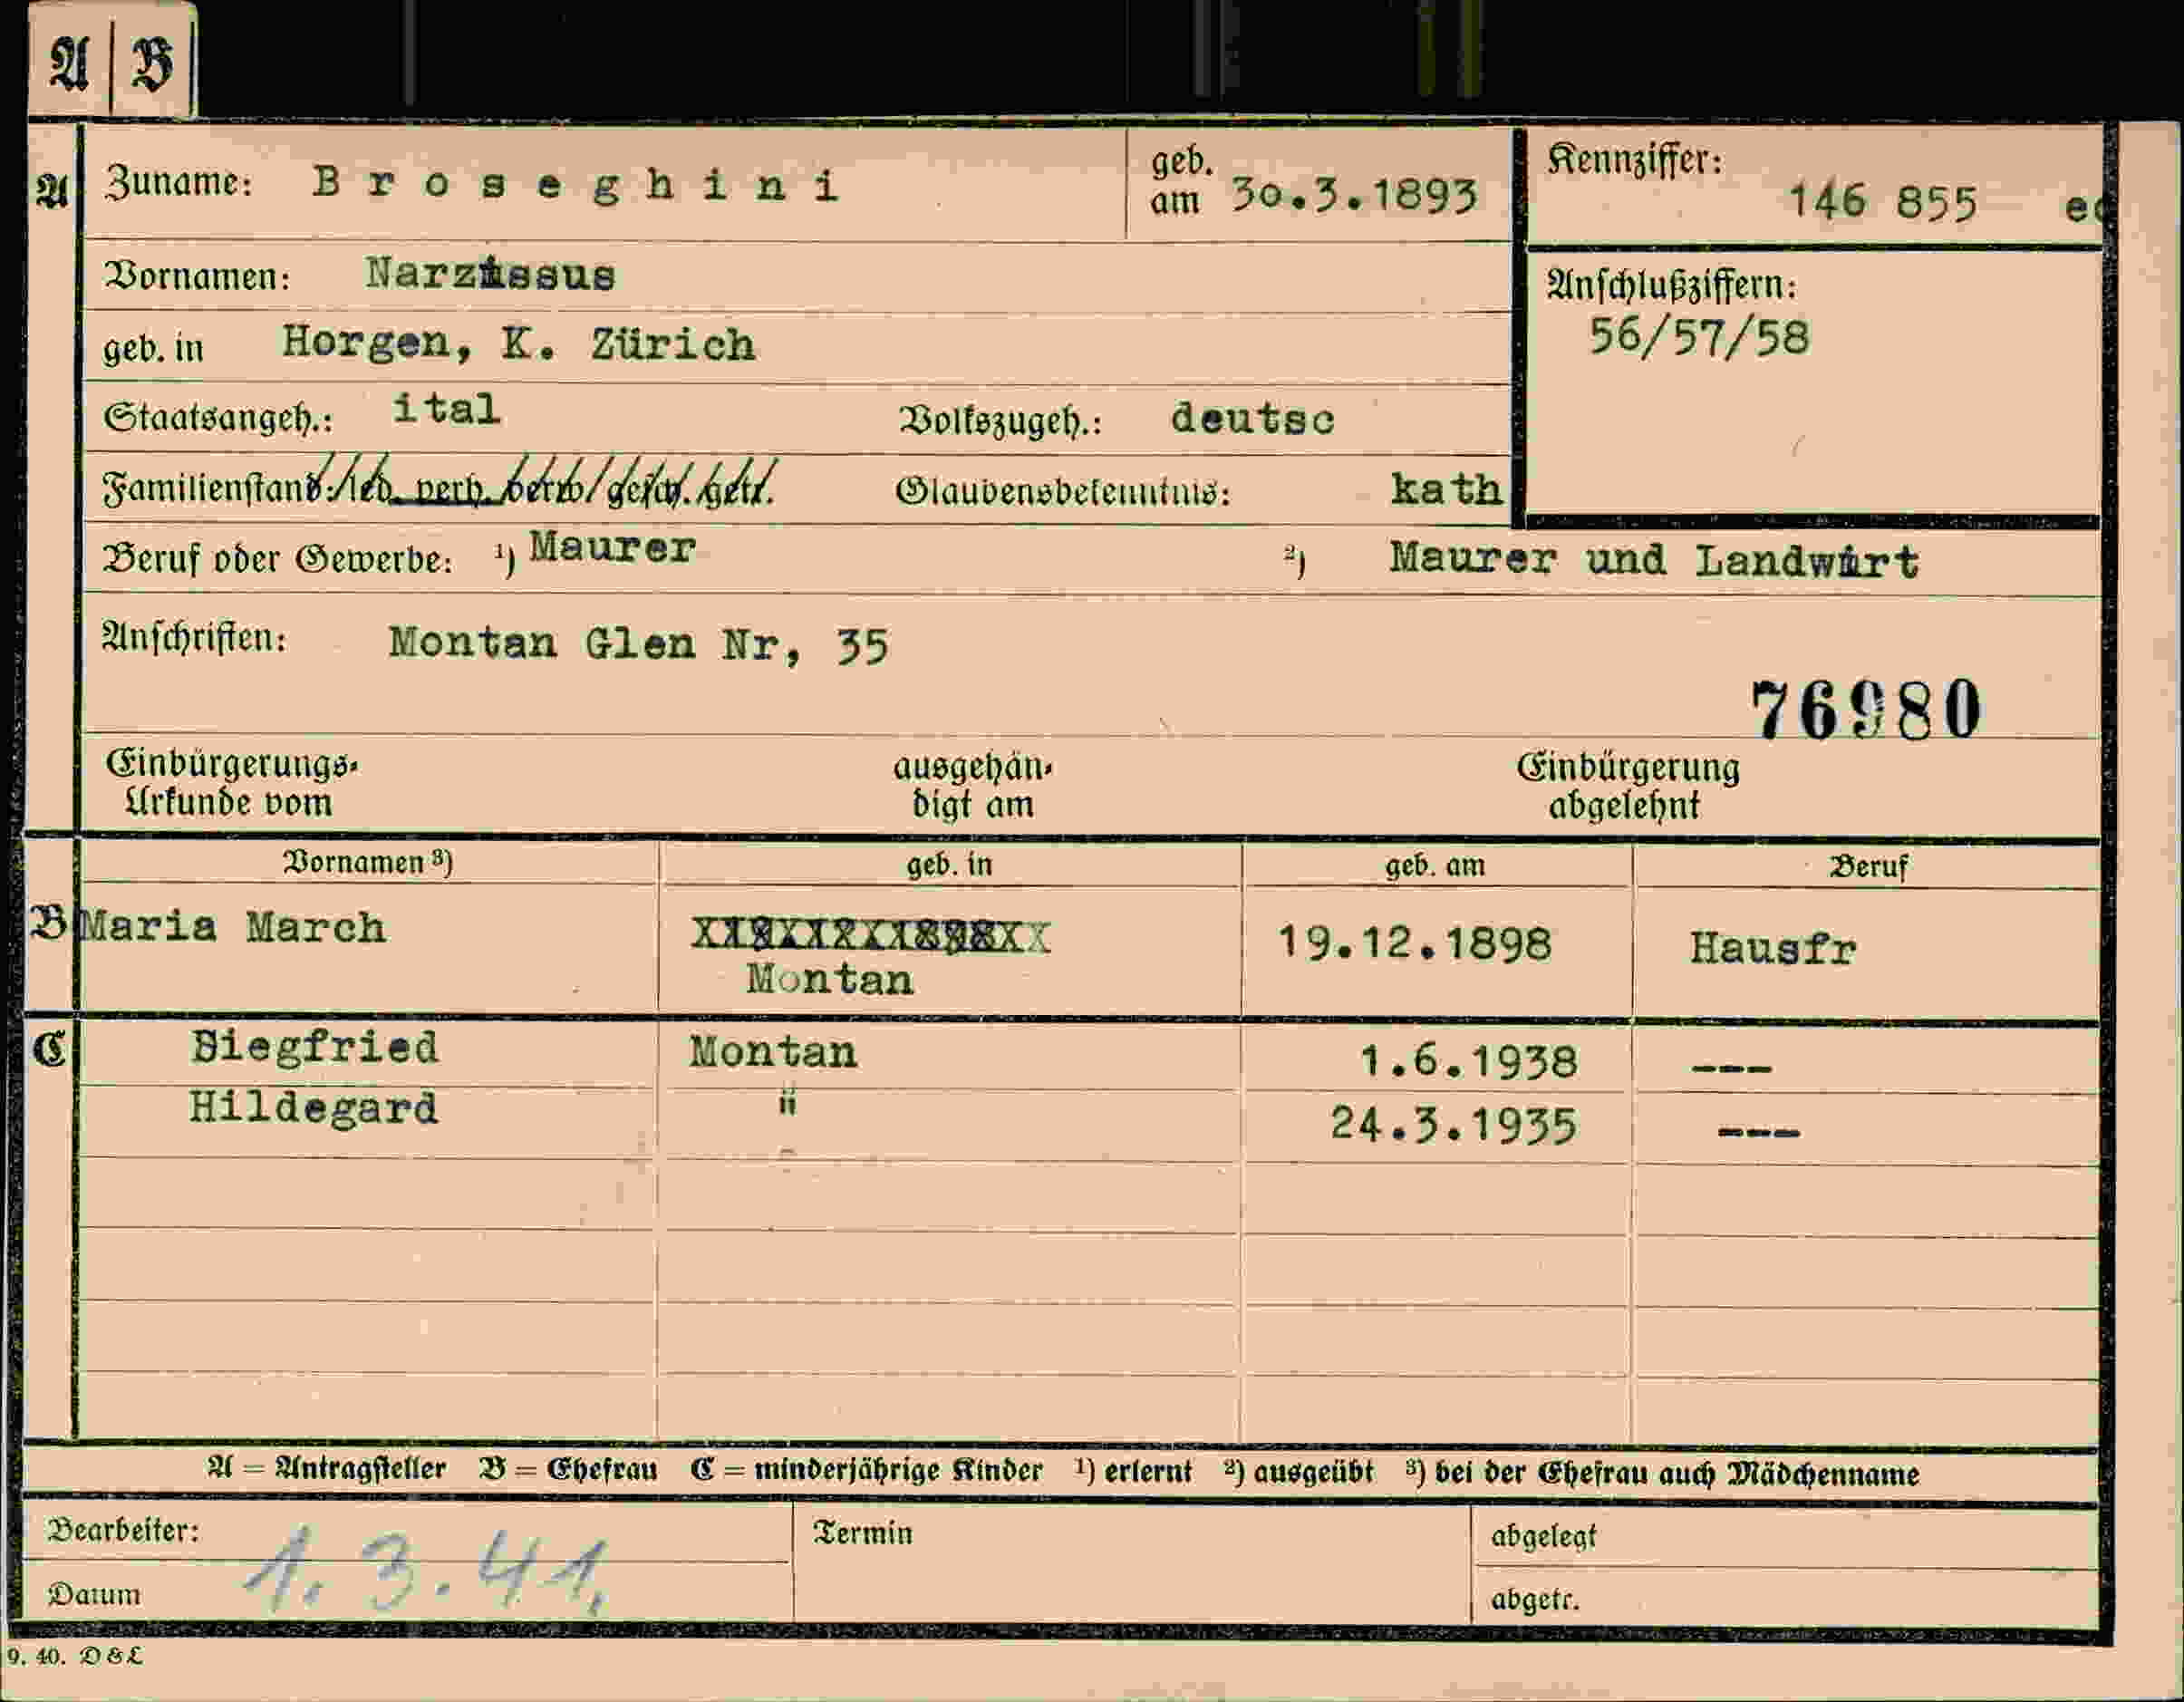 A | B
A Zuname: Broseghini geb. am 30.3.1893 Kennziffer: 146 855
Vornamen: Narzissus Anschlußziffern:
geb. in Horgen, K. Zürich 56/57/58
Staatsangeh.: ital Volkszugeh.: deutsc
Familienstand: led. verh. verw. gesch. getr. Glaubensbekenntnis: kath
Beruf oder Gewerbe: 1) Maurer 2) Maurer und Landwirt
Anschriften: Montan Glen Nr, 35
76980
Einbürgerungs- ausgehän- Einbürgerung
Urkunde vom digt am abgelehnt
Vornamen 3) geb. in geb. am Beruf
B Maria March 19.12.1898 Hausfr
Montan
C Siegfried Montan 1.6.1938 ---
Hildegard " 24.3.1935 ---
A = Antragsteller B = Ehefrau C = minderjährige Kinder 1) erlernt 2) ausgeübt 3) bei der Ehefrau auch Mädchenname
Bearbeiter: Termin abgelegt
Datum 1.3.41. abgetr.
9. 40. D & L